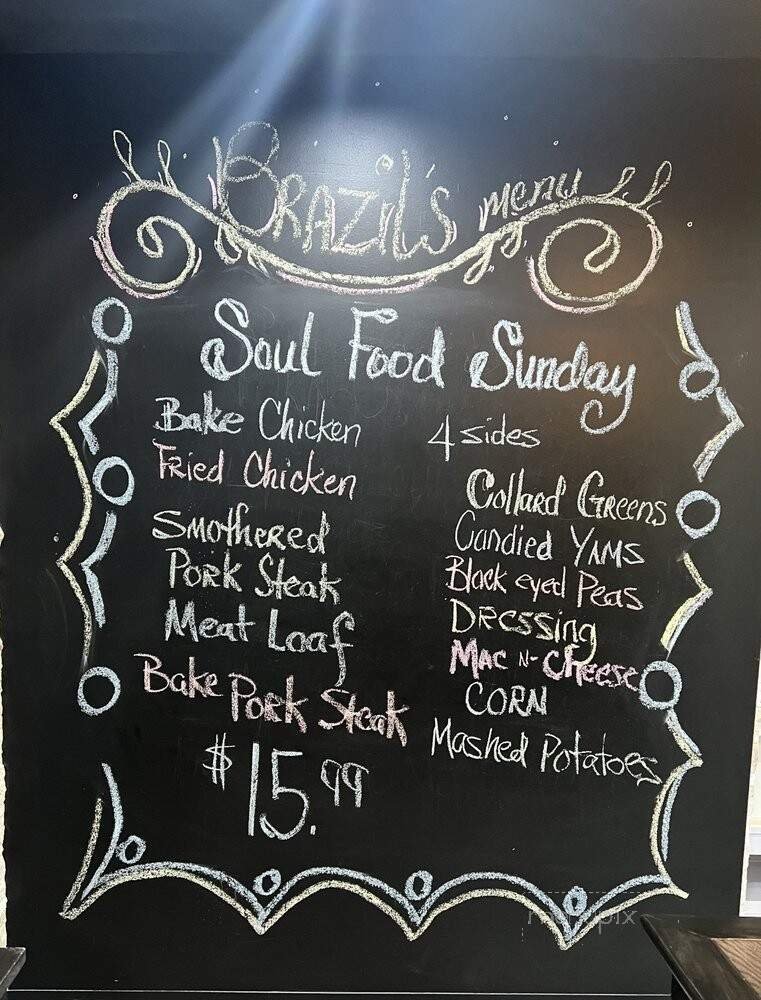 Brazil's menu
Soul Food Sunday
Bake Chicken
Fried Chicken
Smothered
Pork Steak
Meat Loaf
Bake Pork Steak
$15.99
4 sides
Collard Greens
Candied Yams
Black eyed Peas
Dressing
Mac N-Cheese
Corn
Mashed Potatoes